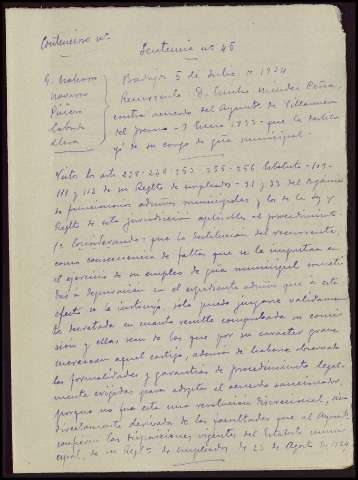 Contencioso nº
Sentencia nº 46
Navarro
Piñero
Badajoz 5 de Julio de 1934
Recurrente D. Emilio Mendez Peña,
contra acuerdo del Ayunto de Villanueva
del Fresno - 9 Enero 1933 - que le destitu
yó de su cargo de guia municipal.
Vistos los arts 235 - 248 253 - 255 - 256 Estatuto - 109 -
111 y 112 de su Regltº de empleados - 31 y 33 del Orgánico
de funcionarios admvos municipales y los de la ley y
Regltº de esta jurisdicción aplicables al procedimiento.
1º Considerando: que la destitución del recurrente,
como consecuencia de faltas que se le imputan en
el ejercicio de su empleo de guia municipal
a depuración en el expediente admvo que a este
efecto se le instruyó, solo puede juzgarse validamen
te decretada en cuanto resulte comprobada su comi
sión y ellas sean de las que por su caracter grave
merezcan aquel castigo, además de haberse observado
las formalidades y garantías de procedimiento legal-
mente exigidas para adoptar el acuerdo sancionador,
porque no fue esta una resolución discrecional, sino
directamente derivada de las facultades que al Ayunto
confieren las disposiciones vigentes del Estatuto muni-
cipal, de su Regltº de empleados de 23 de Agosto de 1924